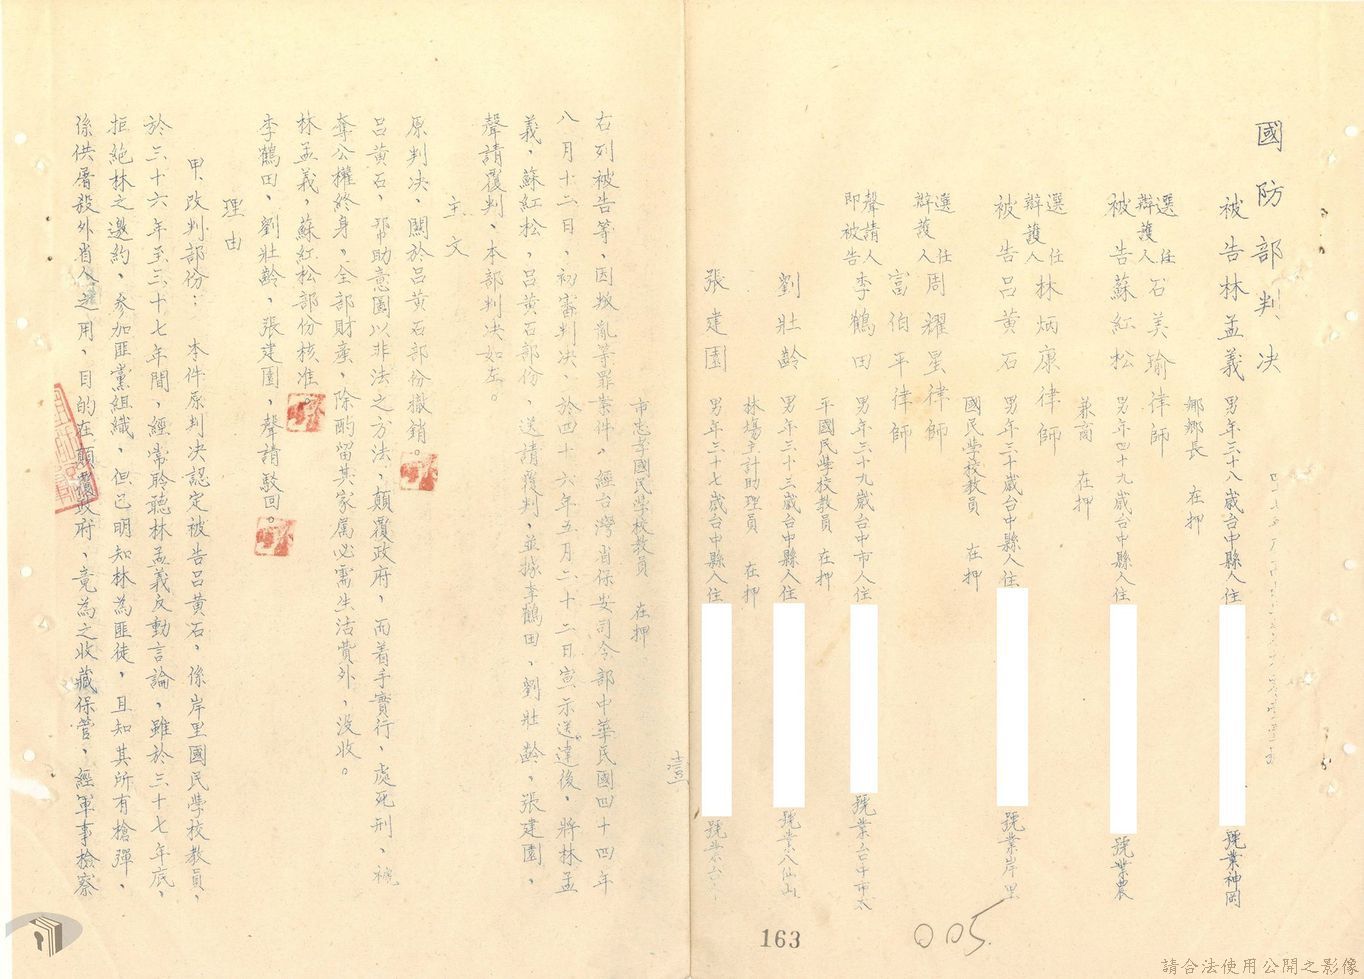 國防部判決
被告林孟義 男年三十八歲台中縣人住 號業神岡
鄉鄉長 在押
選任辯護人 石美瑜律師
被告蘇紅松 男年四十九歲台中縣人住 號業農
兼商 在押
選任辯護人 林炳康律師
被告呂黃石 男年三十歲台中縣人住 號業岸里
國民學校教員 在押
選任辯護人 周耀星律師
富伯平律師
聲請人即被告 李鶴田 男年三十九歲台中市人住 號業台中市太
平國民學校教員 在押
劉壯齡 男年三十三歲台中縣人住 號業八仙山
林場主計助理員 在押
張建園 男年三十七歲台中縣人住 號業台
壹
市忠孝國民學校教員 在押
右列被告等,因叛亂等罪案件,經台灣省保安司令部中華民國四十四年
八月十二日,初審判決,於四十六年五月二十二日宣示送達後,將林孟
義,蘇紅松,呂黃石部份,送請覆判,並據李鶴田,劉壯齡,張建園,
聲請覆判,本部判決如左。
主文
原判決,關於呂黃石部份撤銷。
呂黃石,幫助意圖以非法之方法,顛覆政府,而着手實行,處死刑,褫
奪公權終身,全部財產,除酌留其家屬必需生活費外,沒收。
林孟義,蘇紅松部份核准。
李鶴田,劉壯齡,張建園,聲請駁回。
理由
甲、改判部份: 本件原判決認定被告呂黃石,係岸里國民學校教員,
於三十六年至三十七年間,經常聆聽林孟義反動言論,雖於三十七年底,
拒絕林之邀約,參加匪黨組織,但已明知林為匪徒,且知其所有槍彈,
係供屠殺外省人之用,目的在顛覆政府,竟為之收藏保管,經軍事檢察
163
005
請合法使用公開之影像